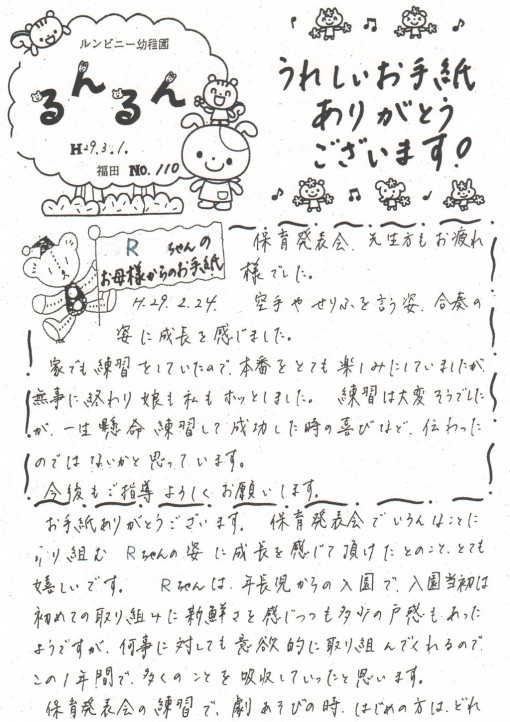 ルンビニー幼稚園
るんるん
H29.3.1.
福田 No.110
うれしいお手紙
ありがとう
ございます!
Rちゃんの
お母様からのお手紙
H.29.2.24.
保育発表会、先生方もお疲れ
様でした。
空手やせりふを言う姿、合奏の
姿に成長を感じました。
家でも練習をしていたので、本番をとても楽しみにしていましたが、
無事に終わり娘も私もホッとしました。 練習は大変そうでした
が、一生懸命練習して成功した時の喜びなど、伝わった
のではないかと思っています。
今後もご指導よろしくお願いします。
お手紙ありがとうございます。 保育発表会でいろんなことに
取り組むRちゃんの姿に成長を感じて頂けたとのこと、とても
嬉しいです。 Rちゃんは、年長児からの入園で、入園当初は
初めての取り組みに新鮮さを感じつつも多少の戸惑もあった
ようですが、何事に対しても意欲的に取り組んでくれるので、
この1年間で、多くのことを吸収していったと思います。
保育発表会の練習で、劇あそびの時、はじめの方は、どれ